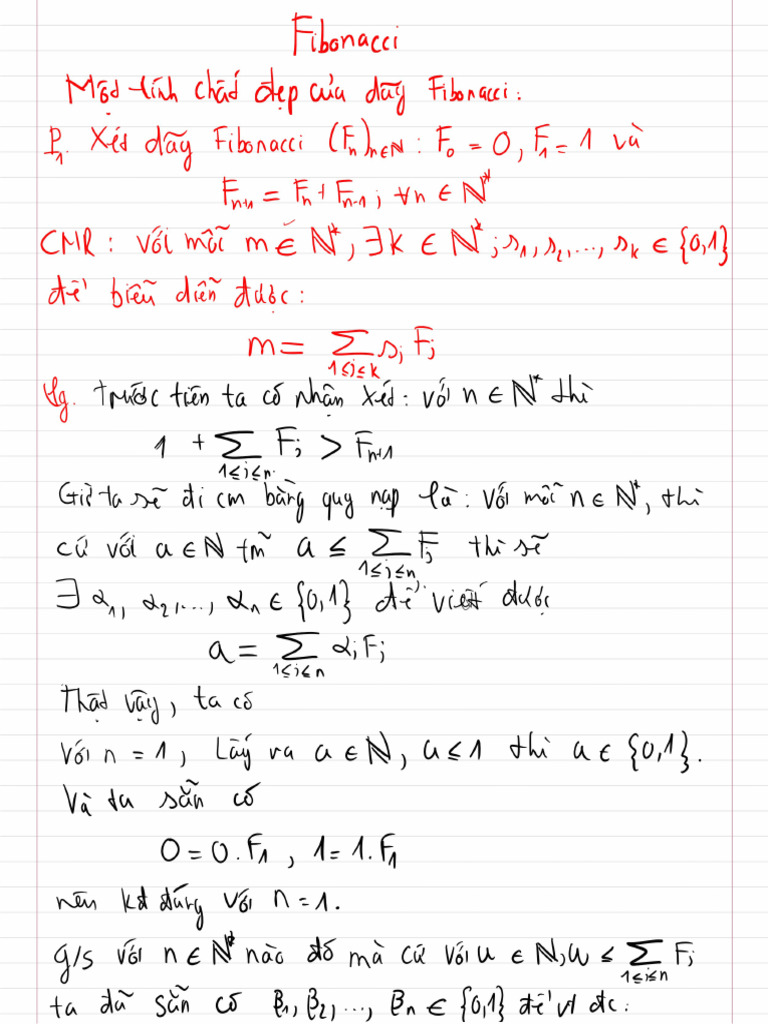 Fibonacci
Một tính chất đẹp của dãy Fibonacci:
P₁. Xét dãy Fibonacci (Fₙ)ₙ∈ℕ : F₀ = 0, F₁ = 1 và
Fₙ₊₁ = Fₙ + Fₙ₋₁ ; ∀n ∈ ℕ*
CMR: với mỗi m ∈ ℕ*, ∃k ∈ ℕ*; s₁, s₂, ..., sₖ ∈ {0,1}
để biểu diễn được:
m = ∑_{1≤j≤k} sⱼ Fⱼ
Lg. Trước tiên ta có nhận xét: với n ∈ ℕ* thì
1 + ∑_{1≤j≤n} Fⱼ > Fₙ₊₁
Giờ ta sẽ đi cm bằng quy nạp là: với mỗi n ∈ ℕ*, thì
cứ với a ∈ ℕ tm a ≤ ∑_{1≤j≤n} Fⱼ thì sẽ
∃ α₁, α₂, ..., αₙ ∈ {0,1} để viết được
a = ∑_{1≤j≤n} αⱼFⱼ
Thật vậy, ta có
với n = 1, Lấy ra a ∈ ℕ, a ≤ 1 thì a ∈ {0,1}.
Và ta sẵn có
0 = 0.F₁ , 1 = 1.F₁
nên kđ đúng với n = 1.
g/s với n ∈ ℕ* nào đó mà cứ với u ∈ ℕ, u ≤ ∑_{1≤j≤n} Fⱼ
ta đã sẵn có β₁, β₂, ..., βₙ ∈ {0,1} để vt đc: